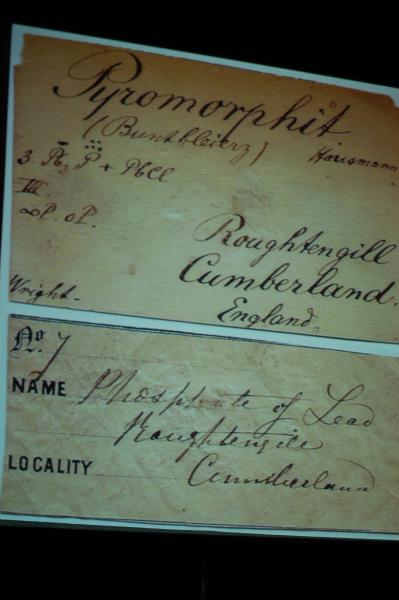 Pyromorphit
(Buntbleierz) Hausmann
3. Pb3 P + PbCl
III
∞P. oP.
Roughtengill
Cumberland.
England.
Wright.
No. 7
NAME Phosphate of Lead
Roughtengill
LOCALITY Cumberland